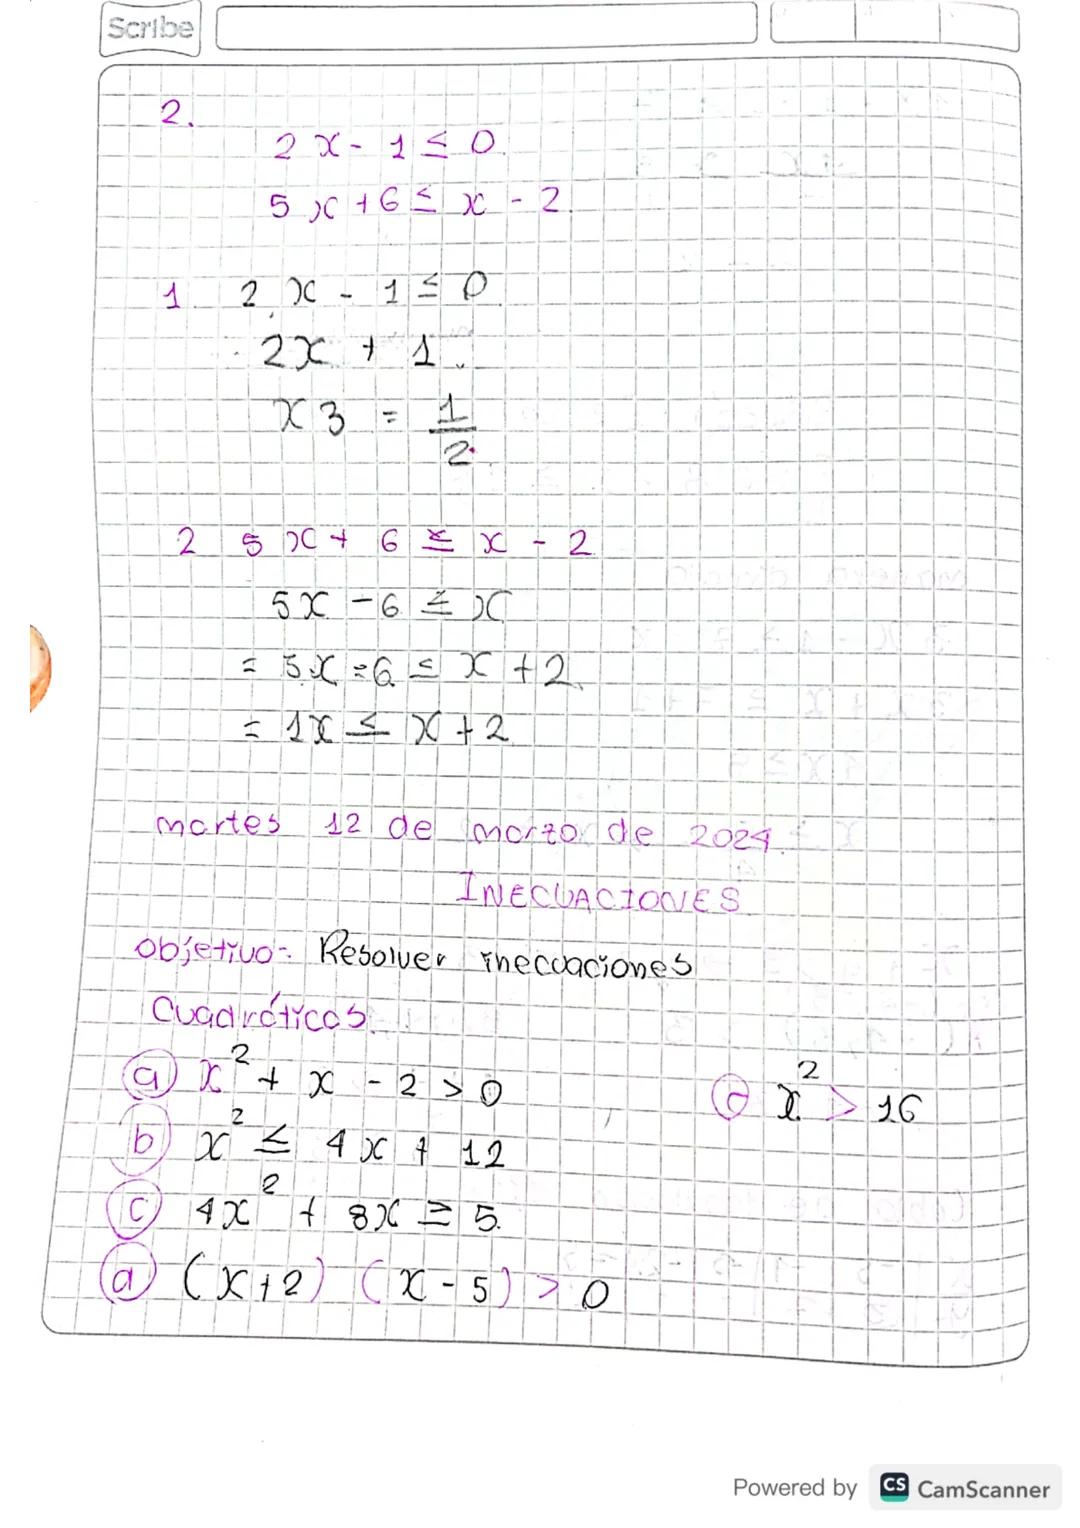 Scribe
2.
2x - 1 ≤ 0.
5x + 6 ≤ x - 2.
1. 2x - 1 ≤ 0
2x + 1.
x3 = 1/2.
2 5x + 6 ≤ x - 2
5x - 6 ≤ x
= 5x = 6 ≤ x + 2.
= 1x ≤ x + 2
martes 12 de marzo de 2024.
INECUACIONES
objetivo: Resolver inecuaciones
Cuadráticas.
a x² + x - 2 > 0
e x² > 16
b x² ≤ 4x + 12
c 4x² + 8x ≥ 5.
d (x+2) (x-5) > 0
Powered by CS CamScanner